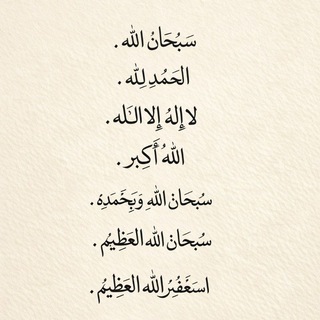 سَبُحَانُ الله .
الحَمُدِ لِلَّه .
لا إِلهُ إِلا اللّه .
اللهُ أَكِبر .
سُبحَانَ اللهِ وَبِحَمَدِهِ .
سُبحَانَ الله العَظِيمُ .
اسغَفُرُ الله العَظِيمُ .